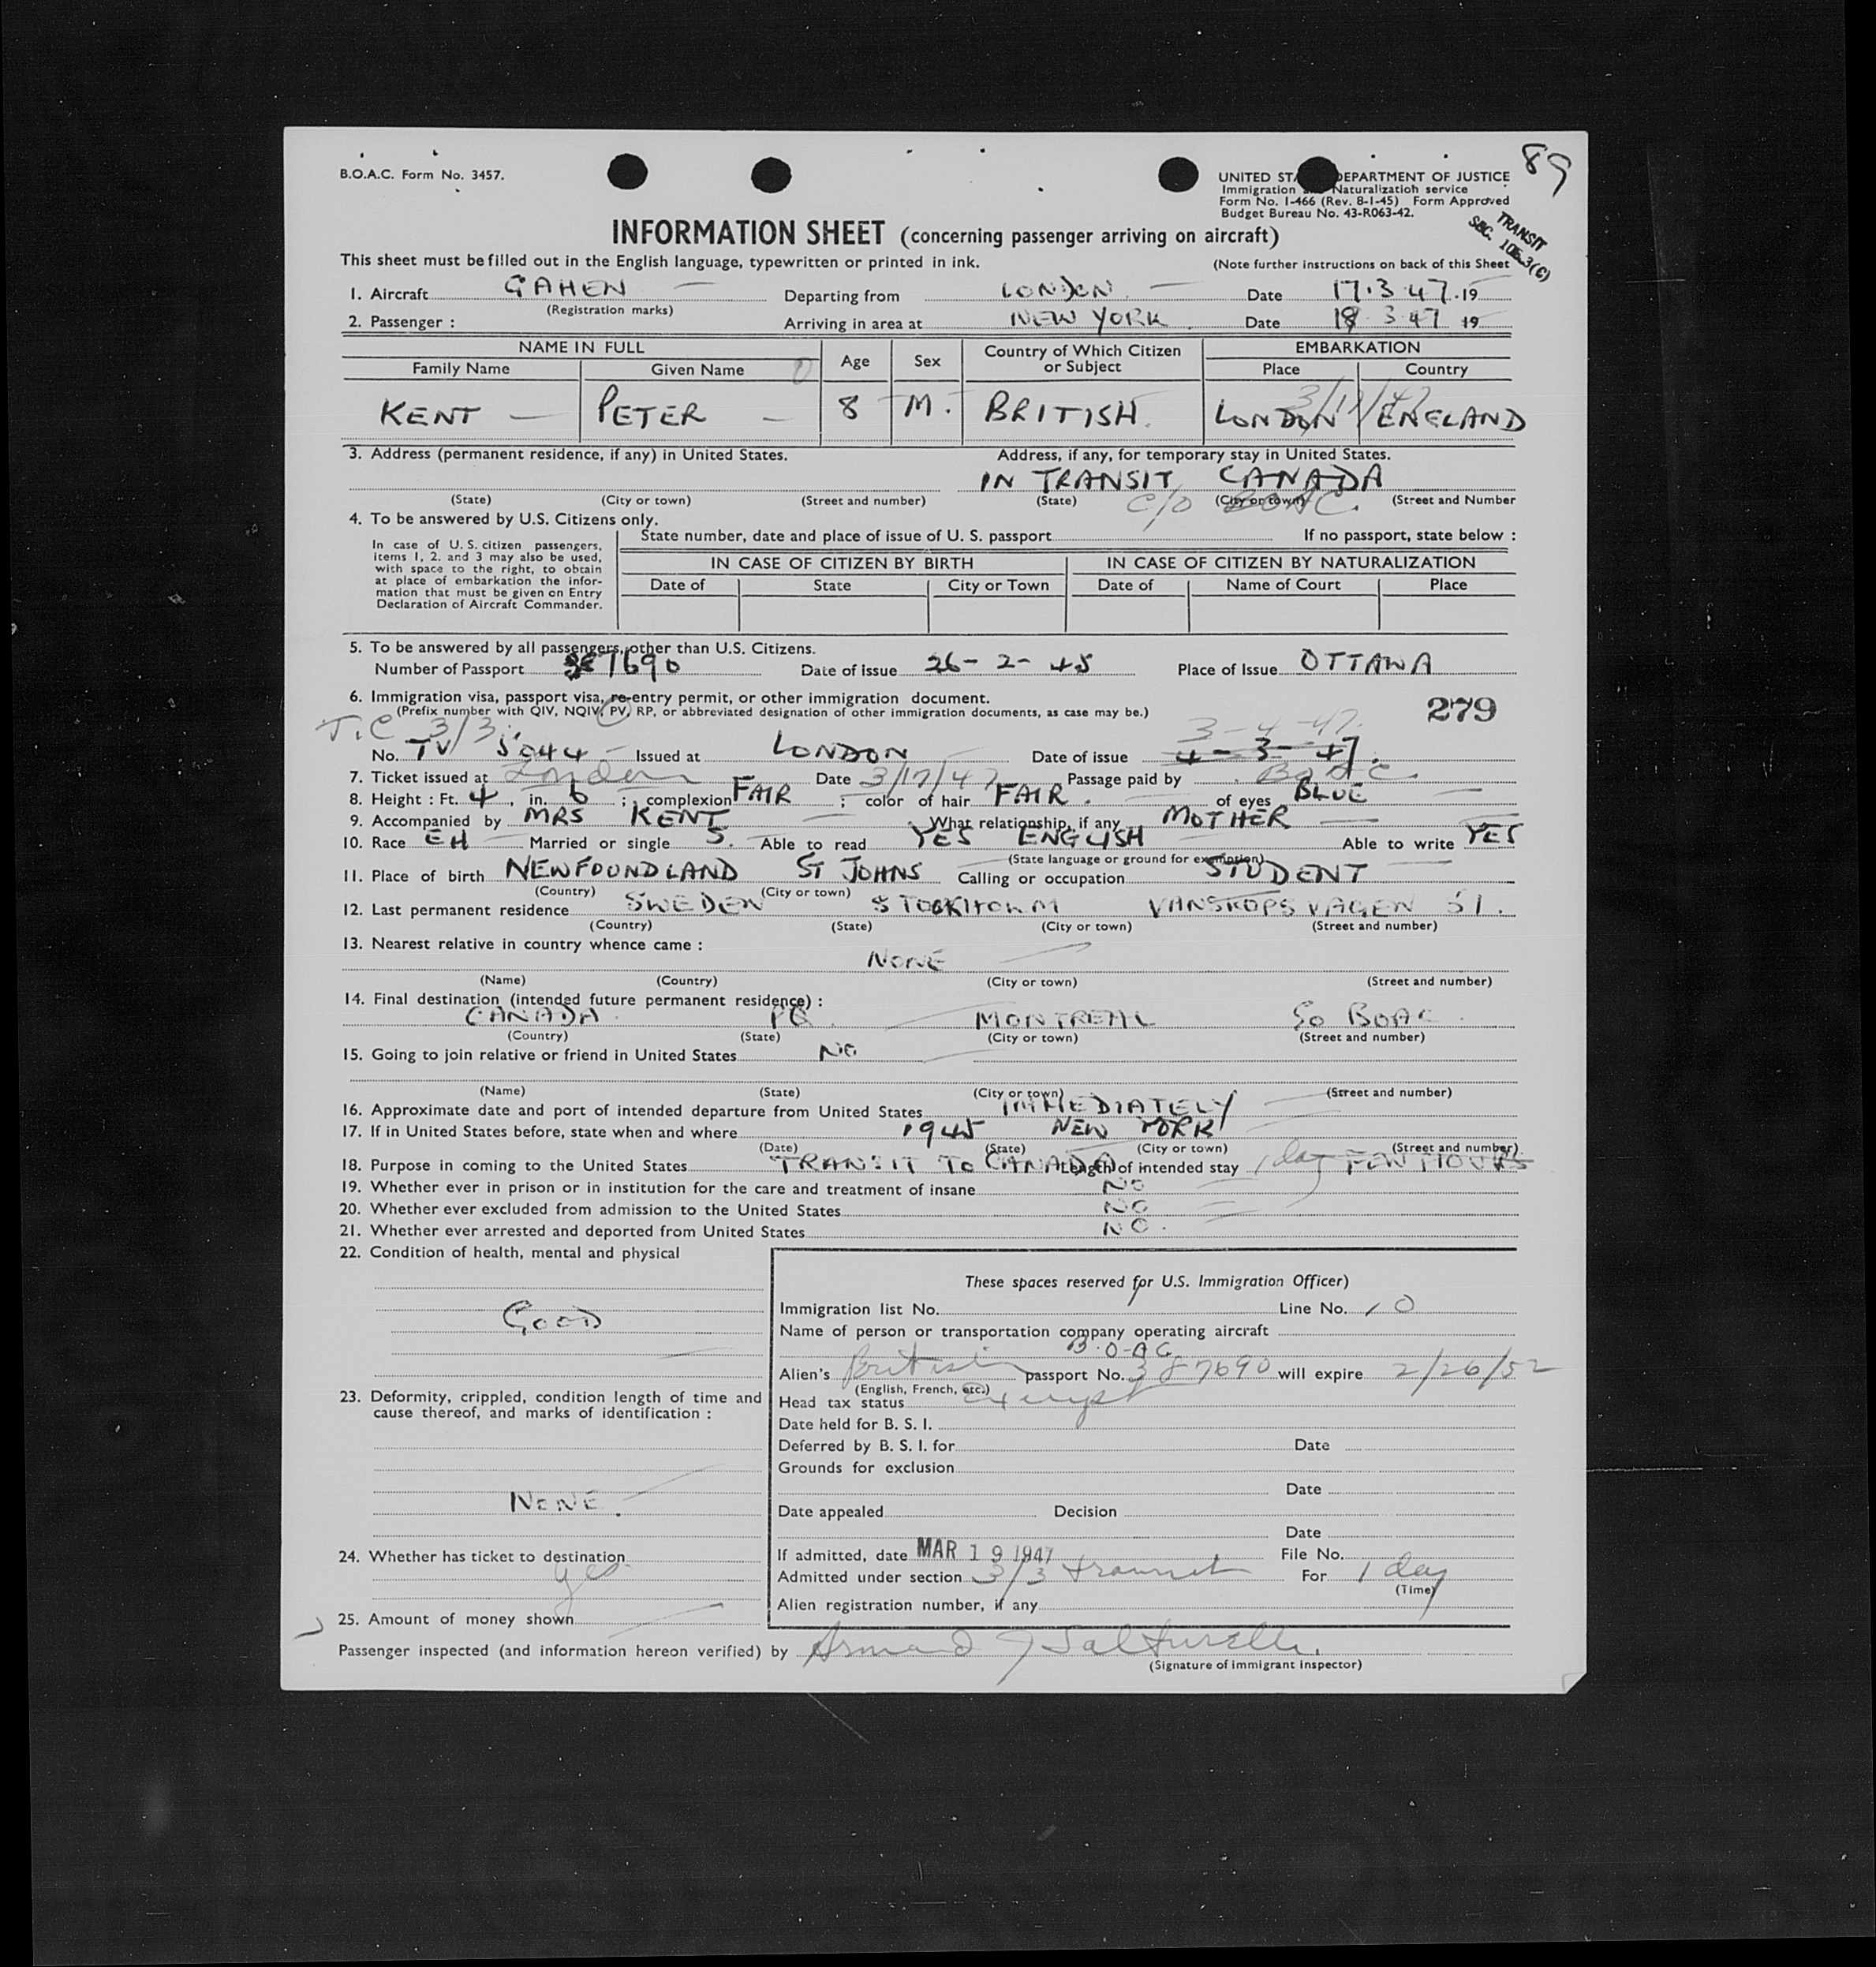 89
B.O.A.C. Form No. 3457.
UNITED STA DEPARTMENT OF JUSTICE
Immigration Naturalization service
Form No. I-466 (Rev. 8-1-45) Form Approved
Budget Bureau No. 43-R063-42.
TRANSIT
SEC. 3(C)
INFORMATION SHEET (concerning passenger arriving on aircraft)
This sheet must be filled out in the English language, typewritten or printed in ink. (Note further instructions on back of this Sheet
1. Aircraft GAHEN Departing from LONDON Date 17.3.47.19
(Registration marks)
2. Passenger : Arriving in area at NEW YORK Date 18 3 47 19
NAME IN FULL Age Sex Country of Which Citizen or Subject EMBARKATION
Family Name Given Name Place Country
KENT PETER 8 M. BRITISH. LONDON ENGLAND
3. Address (permanent residence, if any) in United States. Address, if any, for temporary stay in United States.
IN TRANSIT CANADA
(State) (City or town) (Street and number) (State) (City or town) (Street and Number
C/O BOAC.
4. To be answered by U.S. Citizens only.
State number, date and place of issue of U. S. passport If no passport, state below :
In case of U. S. citizen passengers,
items 1, 2. and 3 may also be used,
with space to the right, to obtain
at place of embarkation the infor-
mation that must be given on Entry
Declaration of Aircraft Commander.
IN CASE OF CITIZEN BY BIRTH IN CASE OF CITIZEN BY NATURALIZATION
Date of State City or Town Date of Name of Court Place
5. To be answered by all passengers, other than U.S. Citizens.
Number of Passport 387690 Date of issue 26-2-45 Place of Issue OTTAWA
6. Immigration visa, passport visa, re-entry permit, or other immigration document.
(Prefix number with QIV, NQIV, PV, RP, or abbreviated designation of other immigration documents, as case may be.) 279
T.C 3/3. 3-4-47.
No. TV 5044 Issued at LONDON Date of issue 4-3-47.
7. Ticket issued at London Date 3/17/47 Passage paid by BOAC
8. Height : Ft. 4, in. 6 ; complexion FAIR ; color of hair FAIR. of eyes BLUE
9. Accompanied by MRS KENT What relationship, if any MOTHER
10. Race EH Married or single S. Able to read YES ENGLISH Able to write YES
(State language or ground for exemption)
11. Place of birth NEWFOUNDLAND ST JOHNS Calling or occupation STUDENT
(Country) (City or town)
12. Last permanent residence SWEDEN STOCKHOLM VANSKOPSVAGEN 51.
(Country) (State) (City or town) (Street and number)
13. Nearest relative in country whence came :
NONE
(Name) (Country) (City or town) (Street and number)
14. Final destination (intended future permanent residence) :
CANADA. PQ. MONTREAL BOAC.
(Country) (State) (City or town) (Street and number)
15. Going to join relative or friend in United States NO
(Name) (State) (City or town) (Street and number)
16. Approximate date and port of intended departure from United States IMMEDIATELY
17. If in United States before, state when and where 1945 NEW YORK
(Date) (State) (City or town) (Street and number)
18. Purpose in coming to the United States TRANSIT TO CANADA Length of intended stay 1 day FEW HOURS
19. Whether ever in prison or in institution for the care and treatment of insane NO
20. Whether ever excluded from admission to the United States NO
21. Whether ever arrested and deported from United States NO.
22. Condition of health, mental and physical
GOOD
23. Deformity, crippled, condition length of time and
cause thereof, and marks of identification :
NONE.
24. Whether has ticket to destination
yes
25. Amount of money shown
These spaces reserved for U.S. Immigration Officer)
Immigration list No. Line No. 10
Name of person or transportation company operating aircraft
B.O-AC
Alien's British passport No. 387690 will expire 2/26/52
(English, French, etc.)
Head tax status Exempt
Date held for B. S. I.
Deferred by B. S. I. for Date
Grounds for exclusion
Date
Date appealed Decision
Date
If admitted, date MAR 19 1947 File No.
Admitted under section 3/3 transit For 1 day
(Time)
Alien registration number, if any
Passenger inspected (and information hereon verified) by Armand J Salturelli.
(Signature of immigrant inspector)